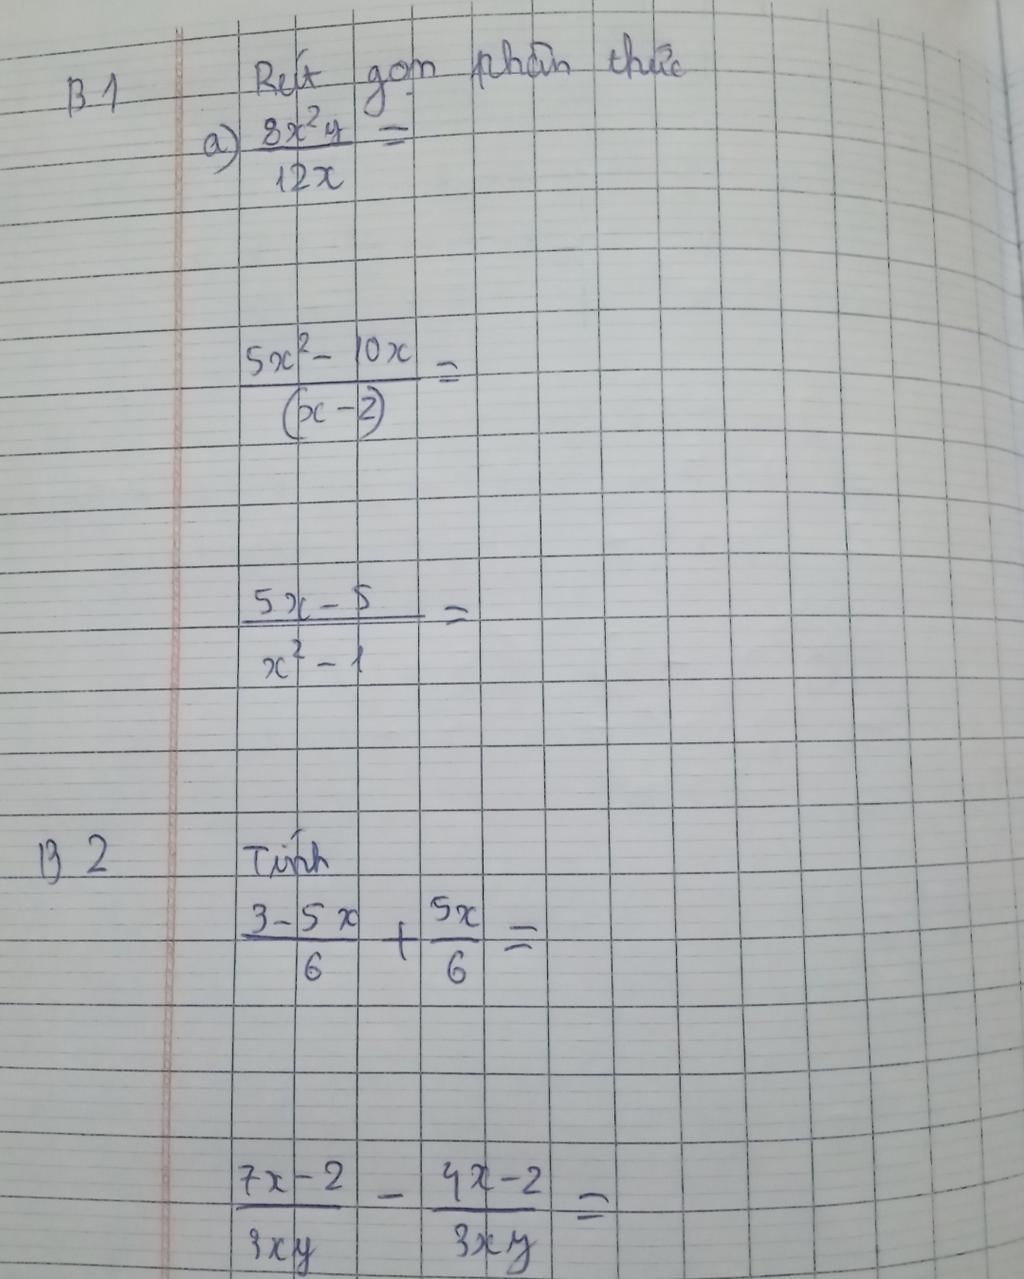 B1 Rút gọn phân thức
a) 8x²y / 12x =
5x² - 10x / (x - 2) =
5x - 5 / x² - 1 =
B2 Tính
3 - 5x / 6 + 5x / 6 =
7x - 2 / 3xy - 4x - 2 / 3xy =